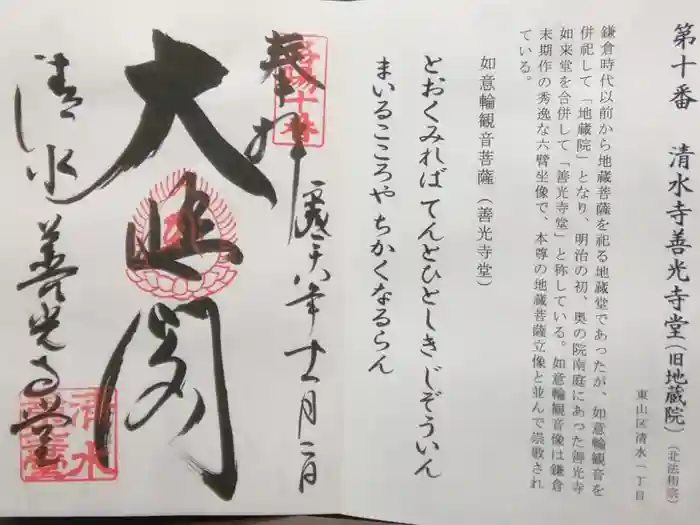 第十番 清水寺善光寺堂(旧地蔵院)(北法相宗)
東山区清水一丁目
鎌倉時代以前から地蔵菩薩を祀る地蔵堂であったが、如意輪観音を
併祀して「地蔵院」となり、明治の初、奥の院南庭にあった善光寺
如来堂を合併して「善光寺堂」と称している。如意輪観音像は鎌倉
末期作の秀逸な六臂坐像で、本尊の地蔵菩薩立像と並んで崇敬され
ている。
如意輪観音菩薩(善光寺堂)
とおくみれば てんとひとしき じぞういん
まいるこころや ちかくなるらん
奉拝
洛陽十番
平成二十八年十一月二日
大悲閣
清水善光寺堂
清水